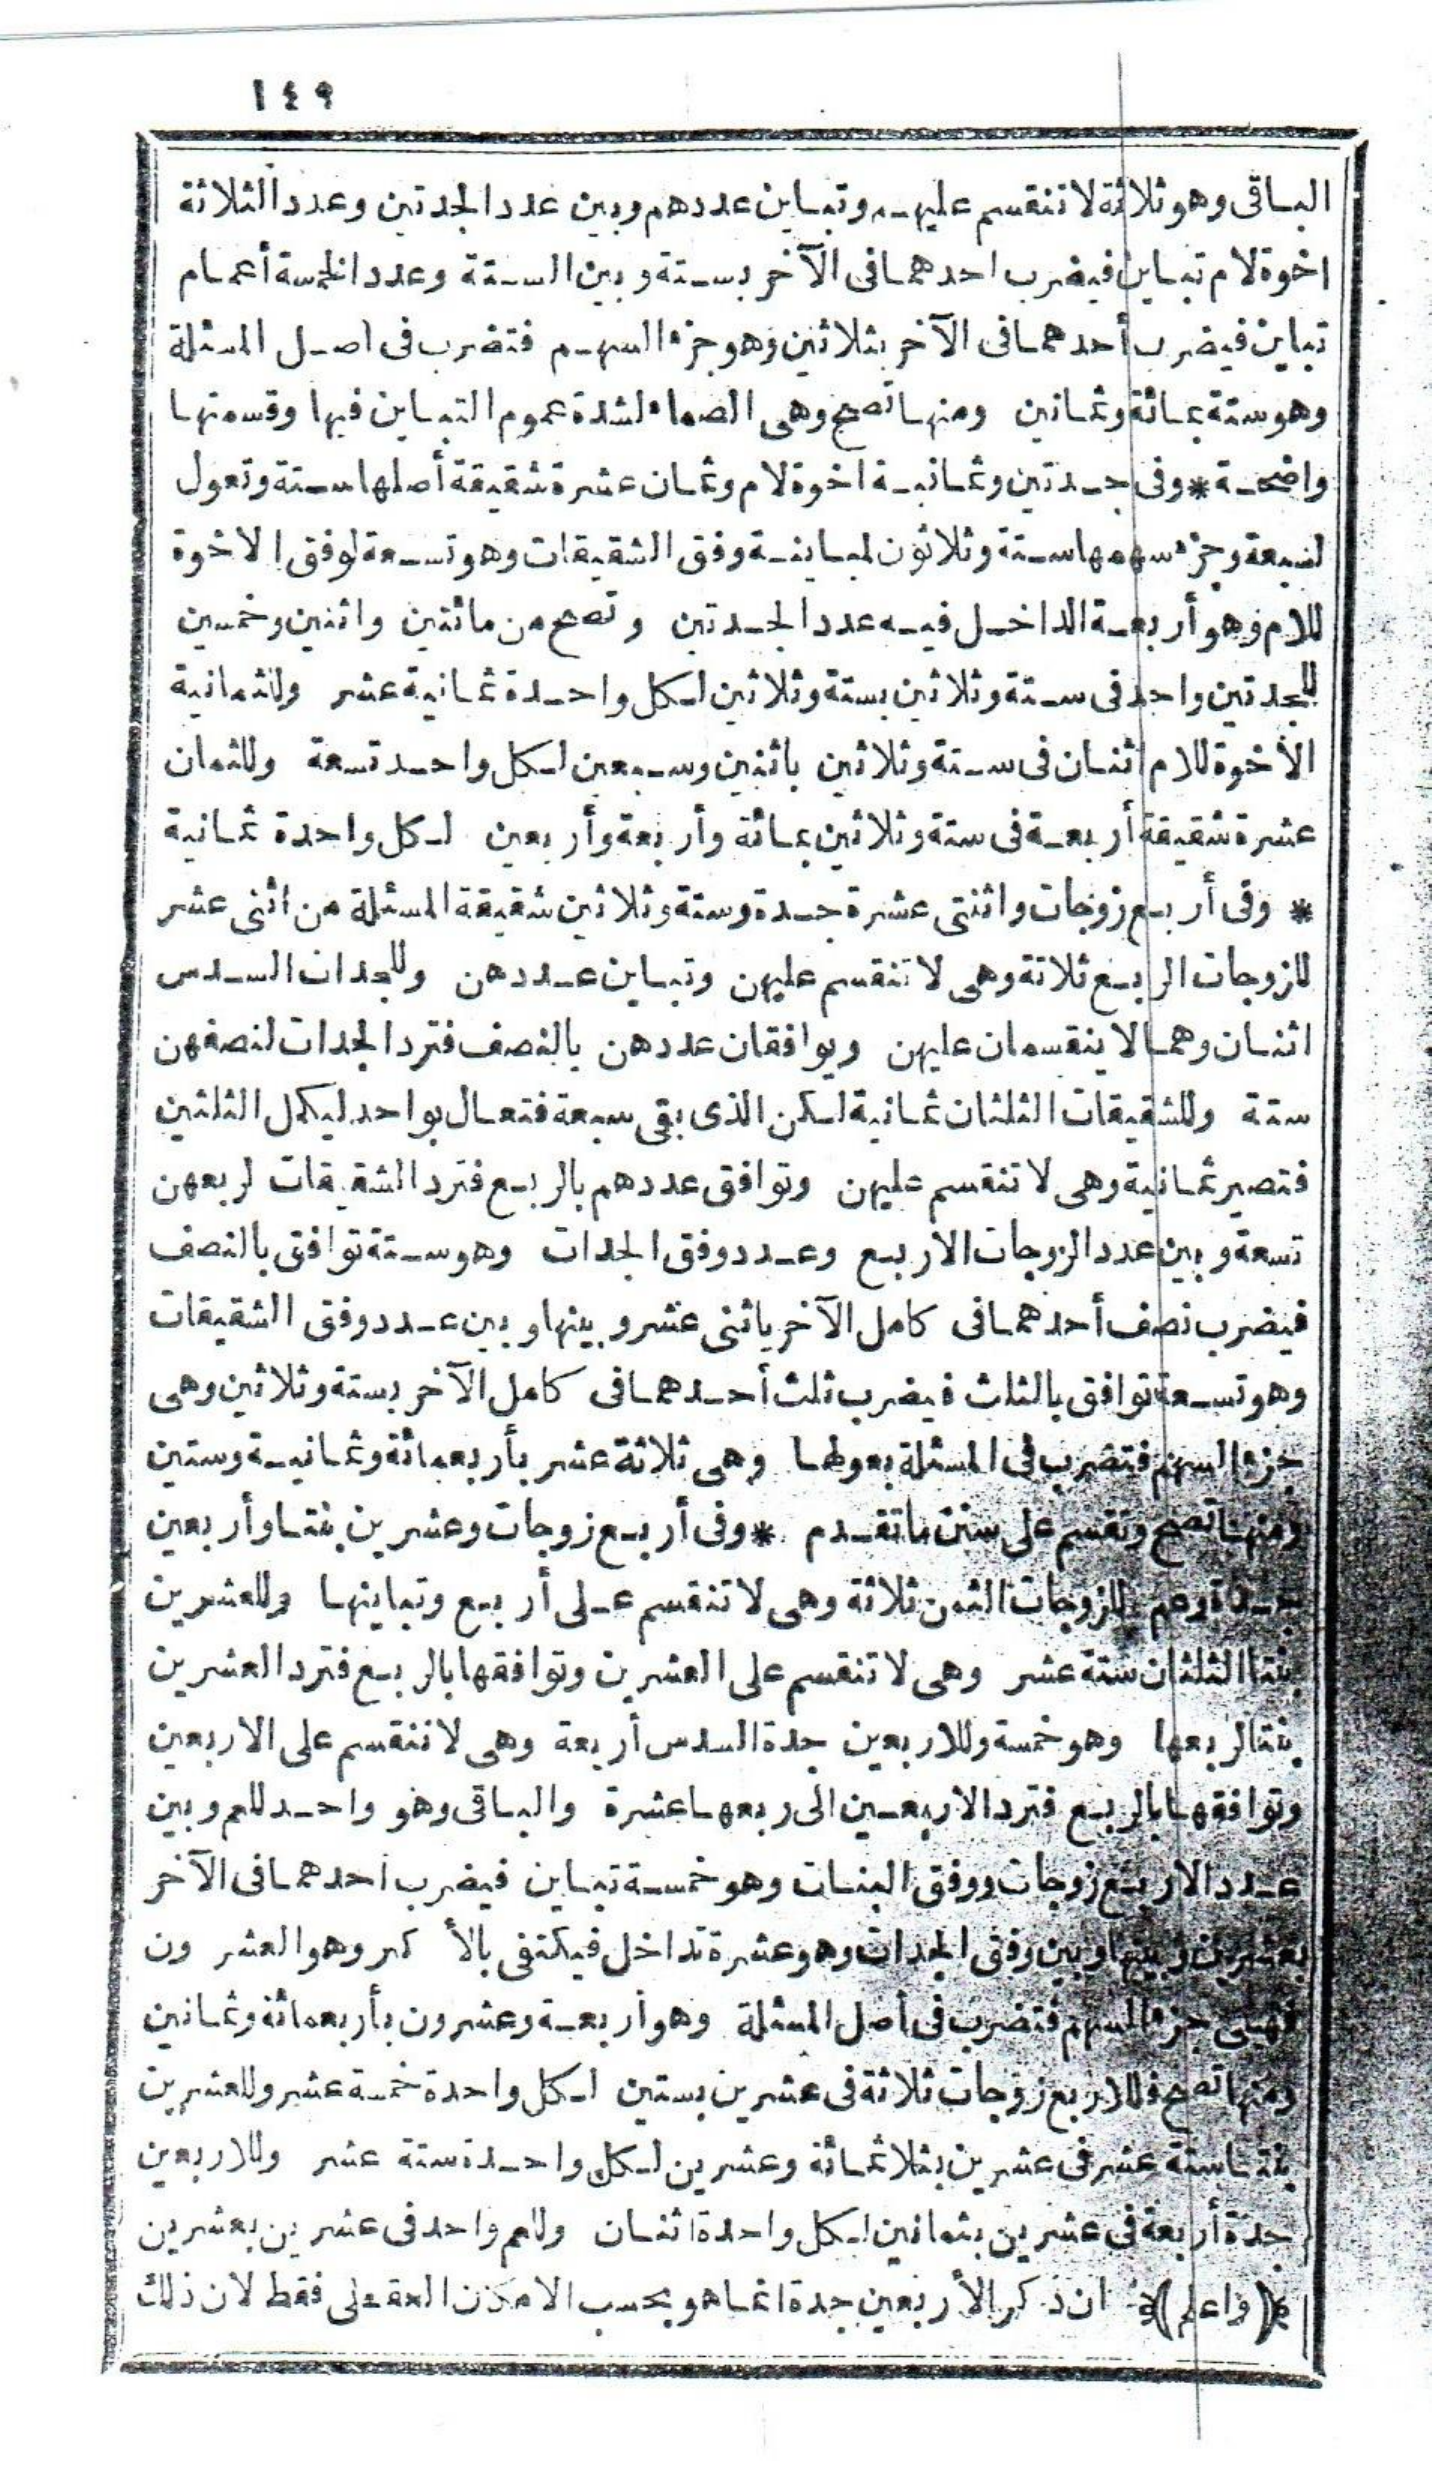 ١٤٩
الباقى وهو ثلاثة لا تنقسم عليهم وتباين عددهم وبين عدد الجدتين وعدد الثلاثة
اخوة لام تباين فيضرب احدهما فى الآخر بستة وبين الستة وعدد الخمسة أعمام
تباين فيضرب أحدهما فى الآخر بثلاثين وهو جزء السهم فتضرب فى اصل المسئلة
وهو ستة بمائة وثمانين ومنها تصح وهى الصماء لشدة عموم التباين فيها وقسمتها
واضحة * وفى جدتين وثمانية اخوة لام وثمان عشرة شقيقة أصلها ستة وتعول
لسبعة وجزء سهمها ستة وثلاثون لمباينة وفق الشقيقات وهو تسعة لوفق الاخوة
للام وهو أربعة الداخل فيه عدد الجدتين وتصح من مائتين واثنين وخمسين
للجدتين واحد فى ستة وثلاثين بستة وثلاثين لكل واحدة ثمانية عشر وللثمانية
الأخوة للام اثنان فى ستة وثلاثين باثنين وسبعين لكل واحد تسعة وللثمان
عشرة شقيقة أربعة فى ستة وثلاثين بمائة وأربعة وأربعين لكل واحدة ثمانية
* وفى أربع زوجات واثنتى عشرة جدة وستة وثلاثين شقيقة المسئلة من اثنى عشر
للزوجات الربع ثلاثة وهى لا تنقسم عليهن وتباين عددهن وللجدات السدس
اثنان وهما لا ينقسمان عليهن ويوافقان عددهن بالنصف فترد الجدات لنصفهن
ستة وللشقيقات الثلثان ثمانية لكن الذى بقى سبعة فتعال بواحد ليكمل الثلثين
فتصير ثمانية وهى لا تنقسم عليهن وتوافق عددهم بالربع فترد الشقيقات لربعهن
تسعة وبين عدد الزوجات الاربع وعدد وفق الجدات وهو ستة توافق بالنصف
فيضرب نصف أحدهما فى كامل الآخر باثنى عشر وبينها وبين عدد وفق الشقيقات
وهو تسعة توافق بالثلث فيضرب ثلث أحدهما فى كامل الآخر بستة وثلاثين وهى
جزء السهم فتضرب فى المسئلة بعولها وهى ثلاثة عشر بأربعمائة وثمانية وستين
ومنها تصح وتقسم على سنن ما تقدم * وفى أربع زوجات وعشرين بنتا وأربعين
جدة وعم للزوجات الثمن ثلاثة وهى لا تنقسم على أربع وتباينها وللعشرين
بنتا الثلثان ستة عشر وهى لا تنقسم على العشرين وتوافقها بالربع فترد العشرين
بنتا لربعها وهو خمسة وللاربعين جدة السدس أربعة وهى لا تنقسم على الاربعين
وتوافقها بالربع فترد الاربعين الى ربعها عشرة والباقى وهو واحد للعم وبين
عدد الاربع زوجات ووفق البنات وهو خمسة تباين فيضرب احدهما فى الآخر
بعشرين وبينها وبين وفق الجدات وهو عشرة تداخل فيكتفى بالأكبر وهو العشرون
فهى جزء السهم فتضرب فى أصل المسئلة وهو أربعة وعشرون بأربعمائة وثمانين
ومنها تصح فللاربع زوجات ثلاثة فى عشرين بستين لكل واحدة خمسة عشر وللعشرين
بنتا ستة عشر فى عشرين بثلاثمائة وعشرين لكل واحدة ستة عشر وللاربعين
جدة أربعة فى عشرين بثمانين لكل واحدة اثنان وللعم واحد فى عشرين بعشرين
﴿واعلم﴾ ان ذكر الأربعين جدة انما هو بحسب الامكان العقلى فقط لان ذلك